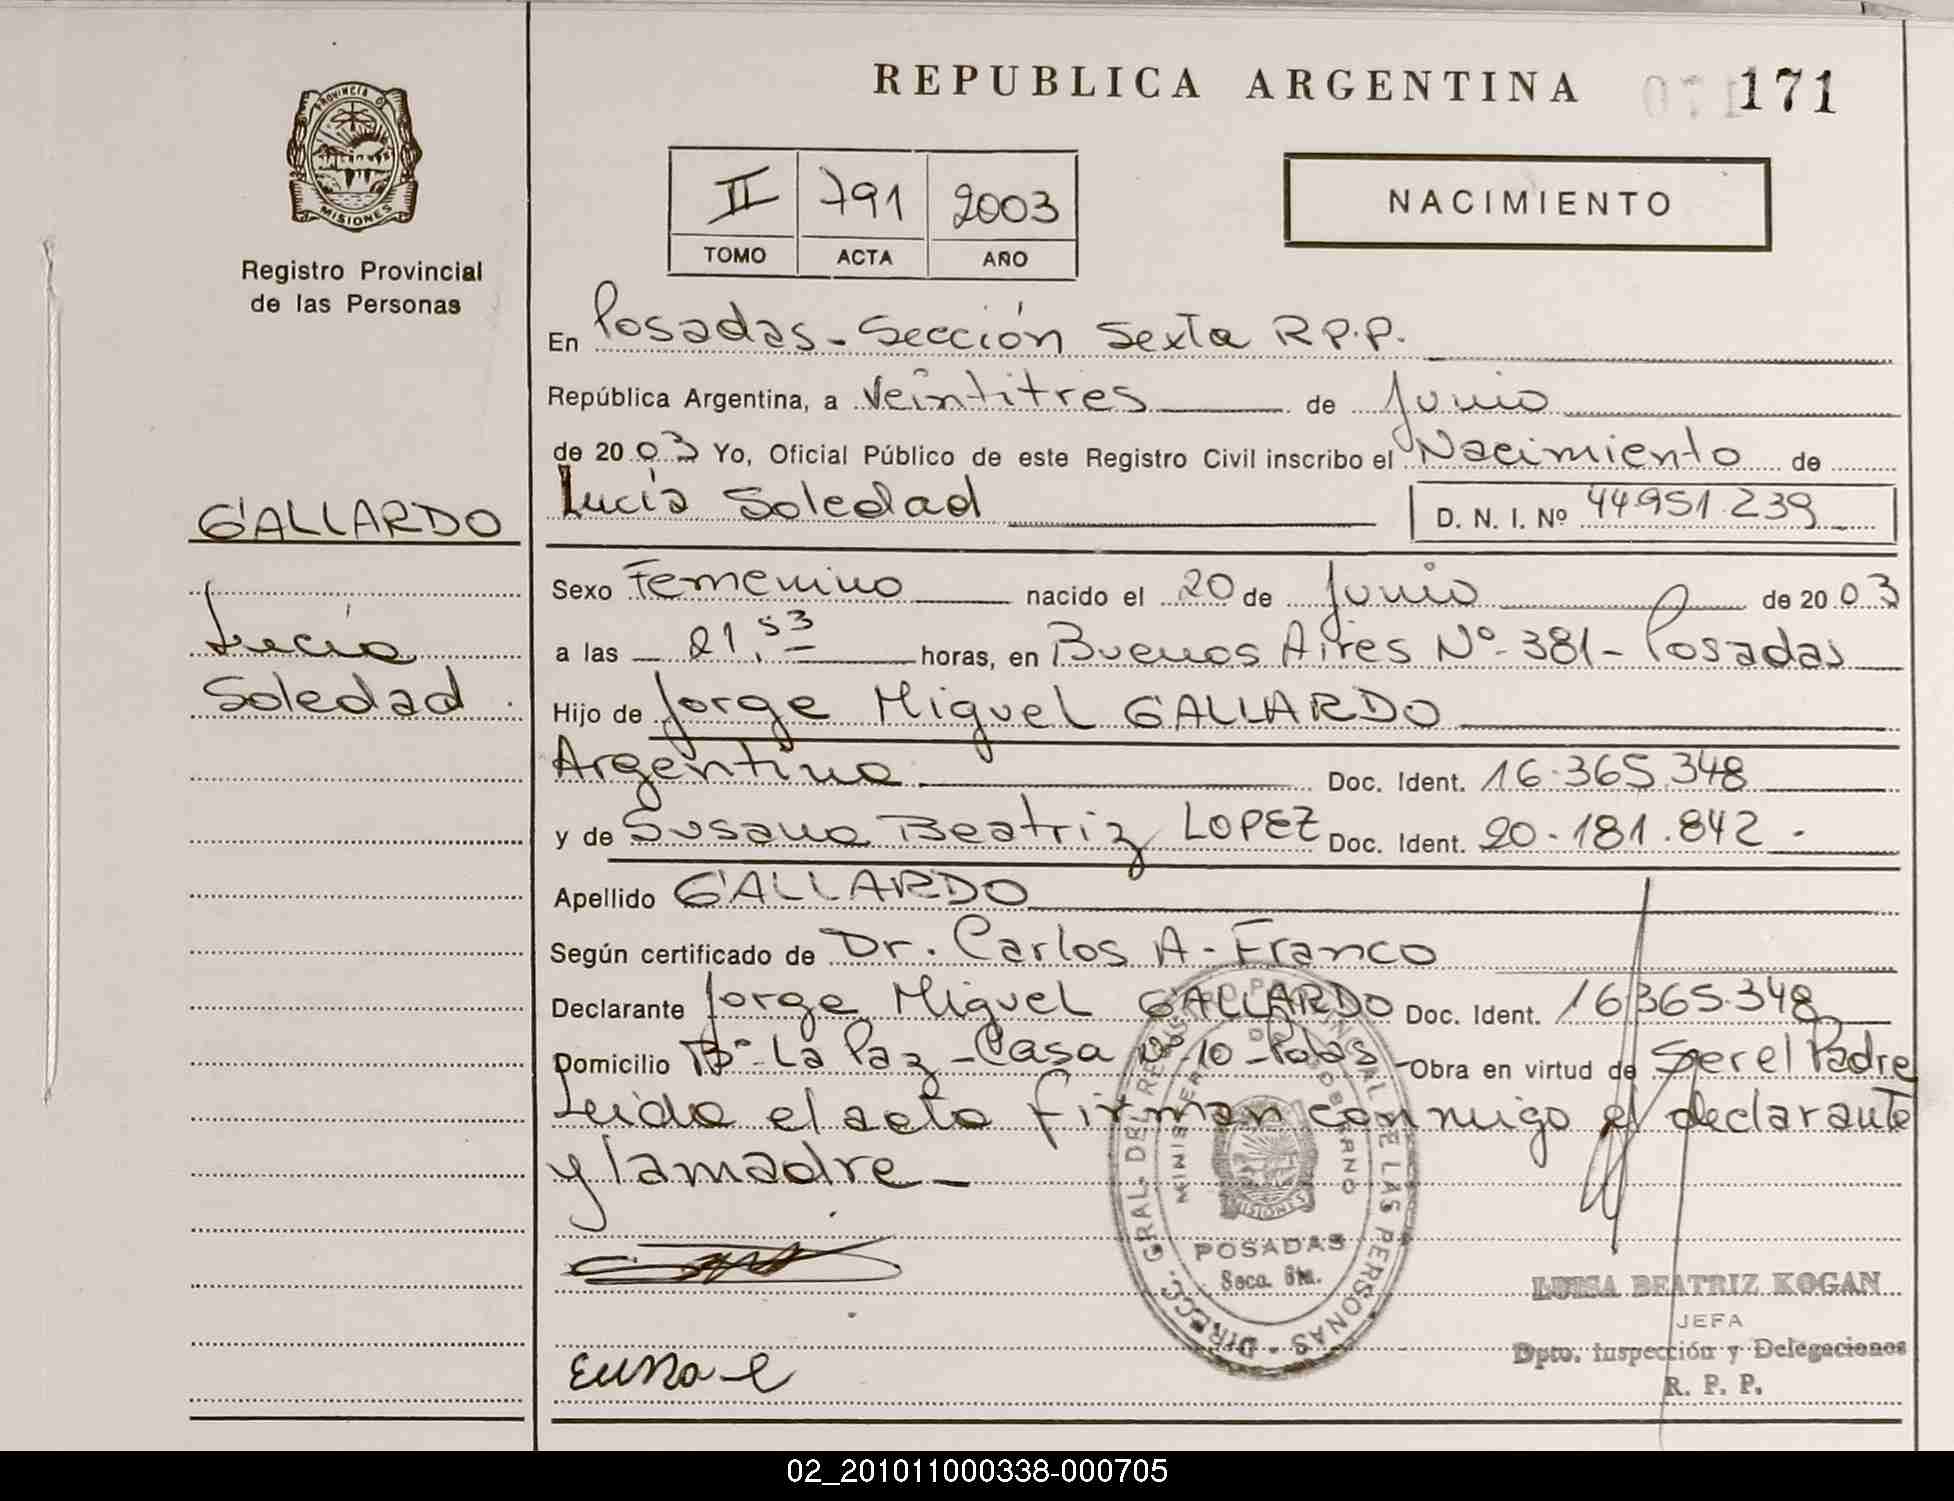 REPUBLICA ARGENTINA
071 171
PROVINCIA DE
MISIONES
Registro Provincial
de las Personas
II 791 2003
TOMO ACTA AÑO
NACIMIENTO
En Posadas - Sección Sexta R.P.P.
República Argentina, a Veintitres de Junio
de 20 03 Yo, Oficial Público de este Registro Civil inscribo el Nacimiento de
Lucía Soledad D. N. I. Nº 44.951.239
GALLARDO
Lucía
Soledad
Sexo Femenino nacido el 20 de Junio de 20 03
a las 21,53 horas, en Buenos Aires Nº 381 - Posadas
Hijo de Jorge Miguel GALLARDO
Argentino Doc. Ident. 16.365.348
y de Susana Beatriz LOPEZ Doc. Ident. 20.181.842.
Apellido GALLARDO
Según certificado de Dr. Carlos A. Franco
Declarante Jorge Miguel GALLARDO Doc. Ident. 16.365.348
Domicilio Bº La Paz - Casa Nº 10 - Pdas. Obra en virtud de Ser el Padre
Leida el acta firman conmigo el declarante
y la madre -
DIRECC. GRAL. DEL REGISTRO PROVINCIAL DE LAS PERSONAS
MINISTERIO DE GOBIERNO
MISIONES
POSADAS
Secc. 6ta.
LUISA BEATRIZ KOGAN
JEFA
Dpto. Inspección y Delegaciones
R. P. P.
02_201011000338-000705